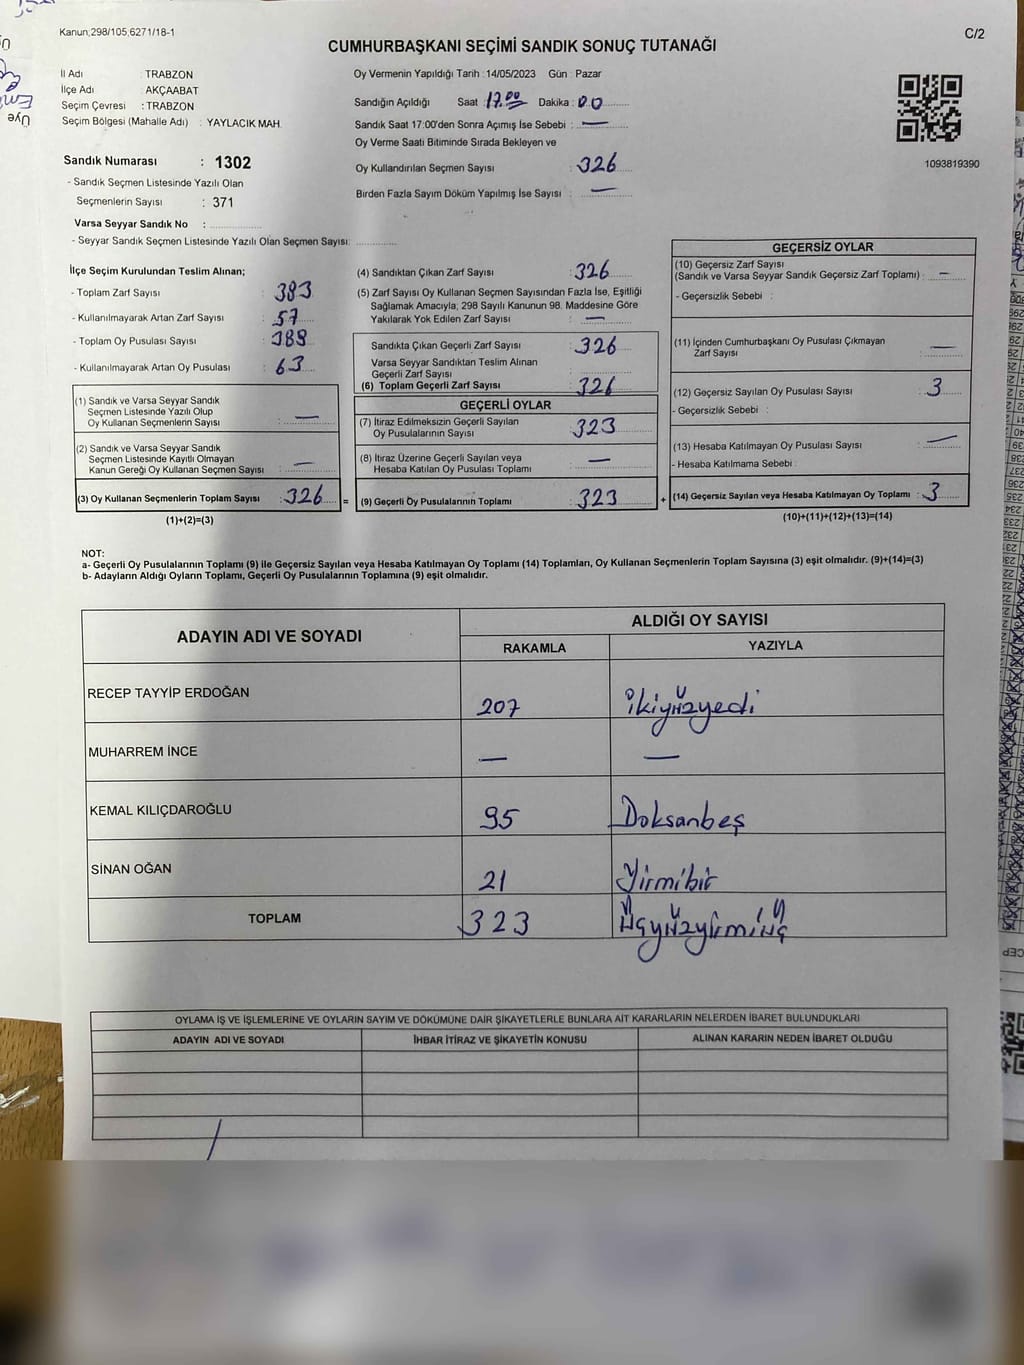 Kanun;298/105,6271/18-1
C/2
CUMHURBAŞKANI SEÇİMİ SANDIK SONUÇ TUTANAĞI
İl Adı : TRABZON
İlçe Adı : AKÇAABAT
Seçim Çevresi : TRABZON
Seçim Bölgesi (Mahalle Adı) : YAYLACIK MAH.
Oy Vermenin Yapıldığı Tarih : 14/05/2023 Gün : Pazar
Sandığın Açıldığı Saat : 17.00 Dakika : 00
Sandık Saat 17:00'den Sonra Açımış İse Sebebi : —
Oy Verme Saati Bitiminde Sırada Bekleyen ve
Oy Kullandırılan Seçmen Sayısı : 326
Birden Fazla Sayım Döküm Yapılmış İse Sayısı : —
1093819390
Sandık Numarası : 1302
- Sandık Seçmen Listesinde Yazılı Olan
Seçmenlerin Sayısı : 371
Varsa Seyyar Sandık No :
- Seyyar Sandık Seçmen Listesinde Yazılı Olan Seçmen Sayısı:
İlçe Seçim Kurulundan Teslim Alınan;
- Toplam Zarf Sayısı : 383
- Kullanılmayarak Artan Zarf Sayısı : 57
- Toplam Oy Pusulası Sayısı : 389
- Kullanılmayarak Artan Oy Pusulası : 63
(1) Sandık ve Varsa Seyyar Sandık
Seçmen Listesinde Yazılı Olup
Oy Kullanan Seçmenlerin Sayısı : —
(2) Sandık ve Varsa Seyyar Sandık
Seçmen Listesinde Kayıtlı Olmayan
Kanun Gereği Oy Kullanan Seçmen Sayısı : —
(3) Oy Kullanan Seçmenlerin Toplam Sayısı : 326 =
(1)+(2)=(3)
(4) Sandıktan Çıkan Zarf Sayısı : 326
(5) Zarf Sayısı Oy Kullanan Seçmen Sayısından Fazla İse, Eşitliği
Sağlamak Amacıyla; 298 Sayılı Kanunun 98. Maddesine Göre
Yakılarak Yok Edilen Zarf Sayısı : —
Sandıkta Çıkan Geçerli Zarf Sayısı : 326
Varsa Seyyar Sandıktan Teslim Alınan
Geçerli Zarf Sayısı :
(6) Toplam Geçerli Zarf Sayısı : 326
GEÇERLİ OYLAR
(7) İtiraz Edilmeksizin Geçerli Sayılan
Oy Pusulalarının Sayısı : 323
(8) İtiraz Üzerine Geçerli Sayılan veya
Hesaba Katılan Oy Pusulası Toplamı : —
(9) Geçerli Oy Pusulalarının Toplamı : 323 +
GEÇERSİZ OYLAR
(10) Geçersiz Zarf Sayısı
(Sandık ve Varsa Seyyar Sandık Geçersiz Zarf Toplamı) : —
- Geçersizlik Sebebi :
(11) İçinden Cumhurbaşkanı Oy Pusulası Çıkmayan
Zarf Sayısı : —
(12) Geçersiz Sayılan Oy Pusulası Sayısı : 3
- Geçersizlik Sebebi :
(13) Hesaba Katılmayan Oy Pusulası Sayısı : —
- Hesaba Katılmama Sebebi :
(14) Geçersiz Sayılan veya Hesaba Katılmayan Oy Toplamı : 3
(10)+(11)+(12)+(13)=(14)
NOT:
a- Geçerli Oy Pusulalarının Toplamı (9) ile Geçersiz Sayılan veya Hesaba Katılmayan Oy Toplamı (14) Toplamları, Oy Kullanan Seçmenlerin Toplam Sayısına (3) eşit olmalıdır. (9)+(14)=(3)
b- Adayların Aldığı Oyların Toplamı, Geçerli Oy Pusulalarının Toplamına (9) eşit olmalıdır.
ADAYIN ADI VE SOYADI ALDIĞI OY SAYISI
RAKAMLA YAZIYLA
RECEP TAYYİP ERDOĞAN 207 ikiyüzyedi
MUHARREM İNCE — —
KEMAL KILIÇDAROĞLU 95 Doksanbeş
SİNAN OĞAN 21 Yirmibir
TOPLAM 323 Üçyüzyirmiüç
OYLAMA İŞ VE İŞLEMLERİNE VE OYLARIN SAYIM VE DÖKÜMÜNE DAİR ŞİKAYETLERLE BUNLARA AİT KARARLARIN NELERDEN İBARET BULUNDUKLARI
ADAYIN ADI VE SOYADI İHBAR İTİRAZ VE ŞİKAYETİN KONUSU ALINAN KARARIN NEDEN İBARET OLDUĞU